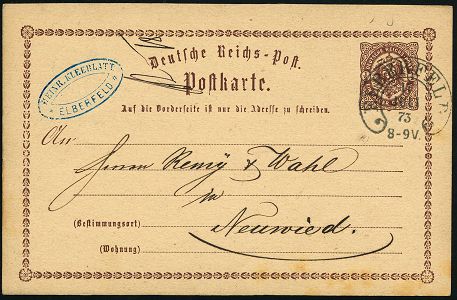 HEINR. KLEEBLATT
ELBERFELD
Deutsche Reichs-Post.
Postkarte.
Auf die Vorderseite ist nur die Adresse zu schreiben.
ELBERFELD
73
8-9V.
An
Herren Remy & Wahl
in
(Bestimmungsort) Neuwied.
(Wohnung)